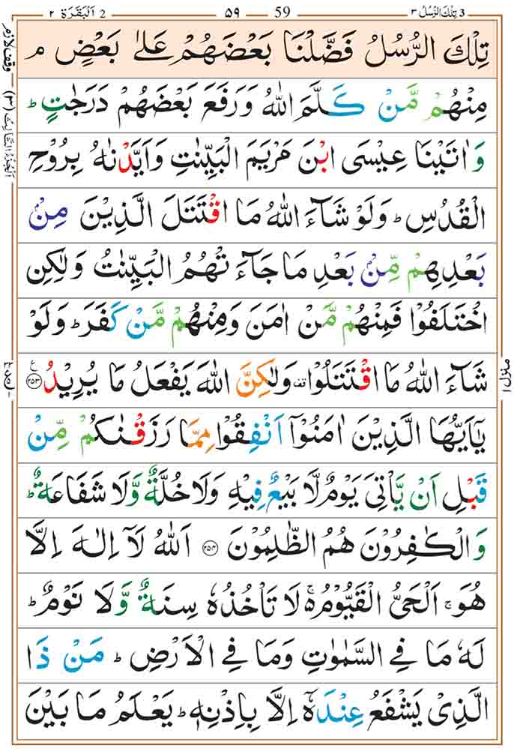 اَلْبَقَرَة ٢ 2 ٥٩ 59 تِلْكَ الرُّسُلُ ٣ 3
تِلْكَ الرُّسُلُ فَضَّلْنَا بَعْضَهُمْ عَلٰى بَعْضٍ ۘ
مِنْهُمْ مَّنْ كَلَّمَ اللّٰهُ وَرَفَعَ بَعْضَهُمْ دَرَجٰتٍ ؕ
وَاٰتَيْنَا عِيْسَى ابْنَ مَرْيَمَ الْبَيِّنٰتِ وَاَيَّدْنٰهُ بِرُوْحِ
الْقُدُسِ ؕ وَلَوْ شَآءَ اللّٰهُ مَا اقْتَتَلَ الَّذِيْنَ مِنْۢ
بَعْدِهِمْ مِّنْۢ بَعْدِ مَا جَآءَتْهُمُ الْبَيِّنٰتُ وَلٰكِنِ
اخْتَلَفُوْا فَمِنْهُمْ مَّنْ اٰمَنَ وَمِنْهُمْ مَّنْ كَفَرَ ؕ وَلَوْ
شَآءَ اللّٰهُ مَا اقْتَتَلُوْا ۟ وَلٰكِنَّ اللّٰهَ يَفْعَلُ مَا يُرِيْدُ ﴿٢٥٣﴾
يٰۤاَيُّهَا الَّذِيْنَ اٰمَنُوْۤا اَنْفِقُوْا مِمَّا رَزَقْنٰكُمْ مِّنْ
قَبْلِ اَنْ يَّاْتِيَ يَوْمٌ لَّا بَيْعٌ فِيْهِ وَلَا خُلَّةٌ وَّلَا شَفَاعَةٌ ؕ
وَالْكٰفِرُوْنَ هُمُ الظّٰلِمُوْنَ ﴿٢٥٤﴾ اَللّٰهُ لَآ اِلٰهَ اِلَّا
هُوَ ۚ اَلْحَيُّ الْقَيُّوْمُ ۚ لَا تَاْخُذُهٗ سِنَةٌ وَّلَا نَوْمٌ ؕ
لَهٗ مَا فِي السَّمٰوٰتِ وَمَا فِي الْاَرْضِ ؕ مَنْ ذَا
الَّذِيْ يَشْفَعُ عِنْدَهٗۤ اِلَّا بِاِذْنِهٖ ؕ يَعْلَمُ مَا بَيْنَ
وقف لازم
اَلْجُزْءُ الثَّالِثُ (٣)
منزل ١